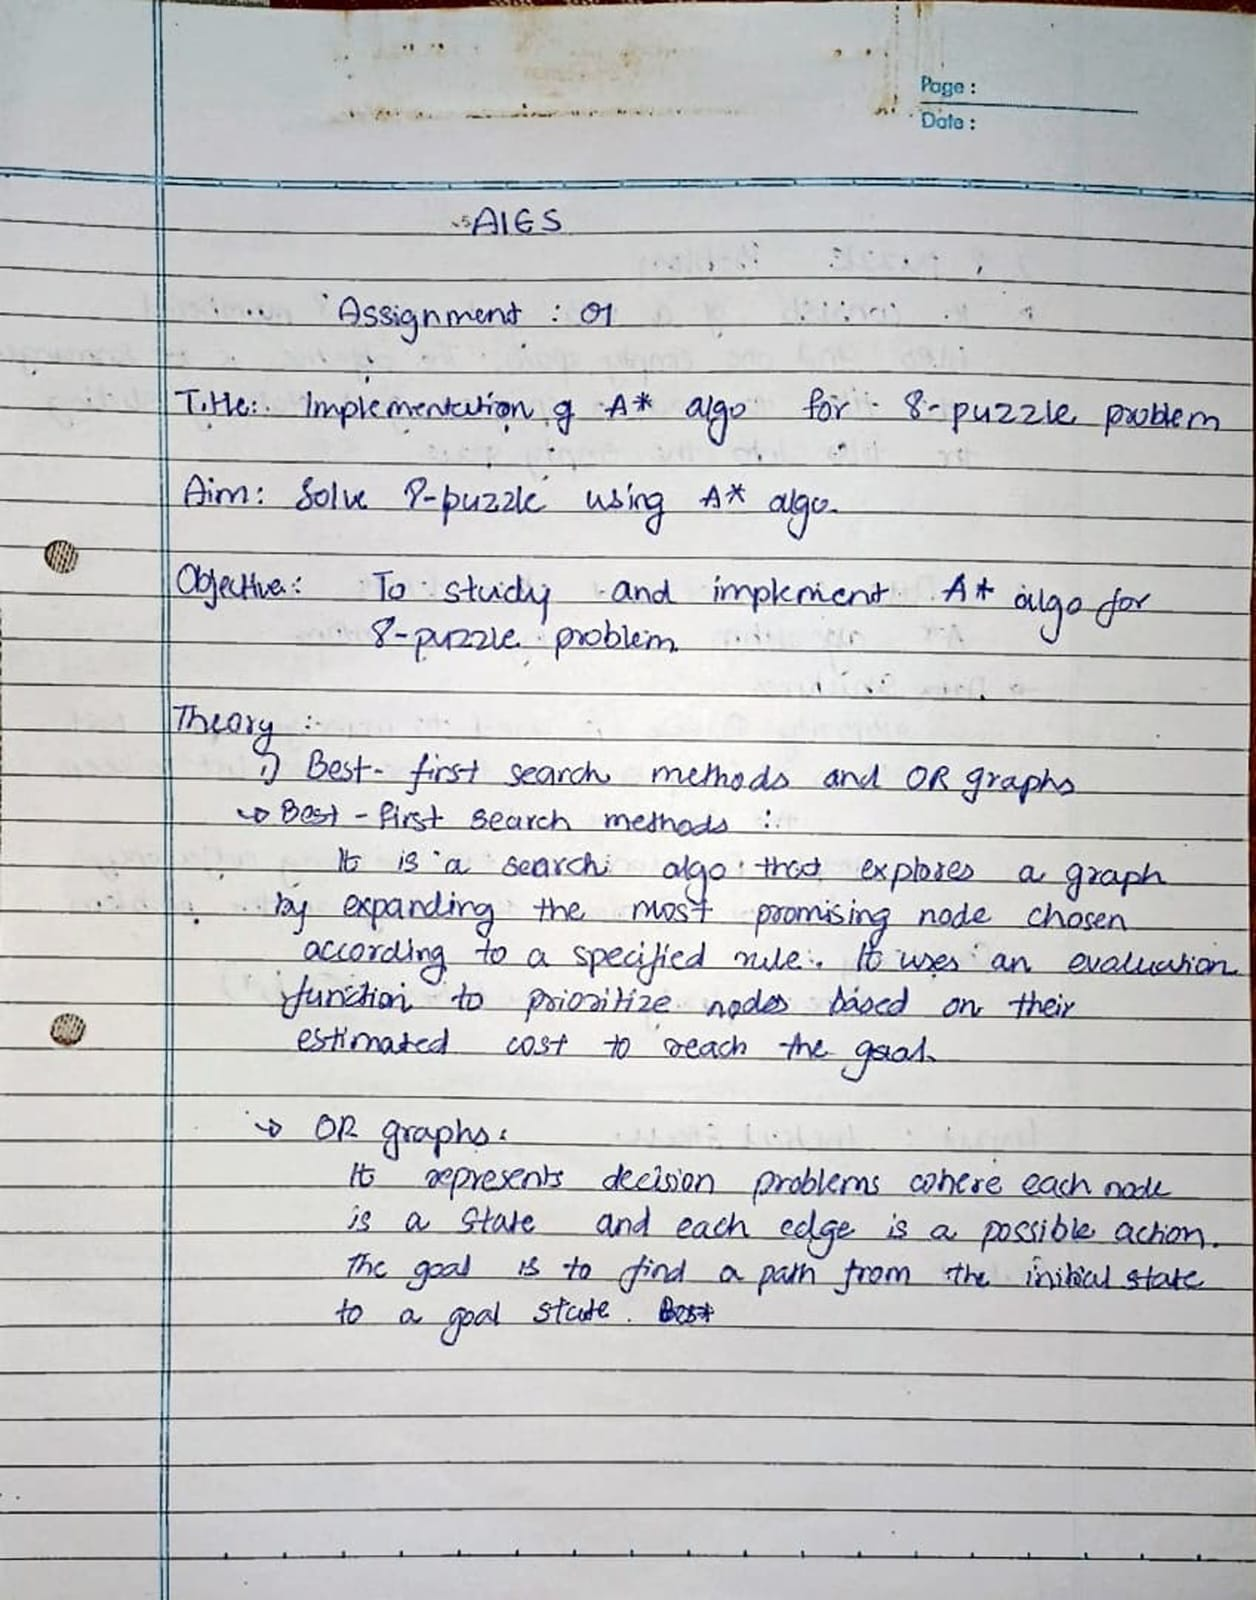 Page :
Date :
AIES
Assignment : 01
Title: Implementation of A* algo for 8-puzzle problem
Aim: Solve 8-puzzle using A* algo.
Objective: To study and implement A* algo for
8-puzzle problem
Theory :-
1) Best-first search methods and OR graphs
→ Best-first search methods :
It is a search algo that explores a graph
by expanding the most promising node chosen
according to a specified rule. It uses an evaluation
function to prioritize nodes based on their
estimated cost to reach the goal.
→ OR graphs:
It represents decision problems where each node
is a state and each edge is a possible action.
The goal is to find a path from the initial state
to a goal state. Best